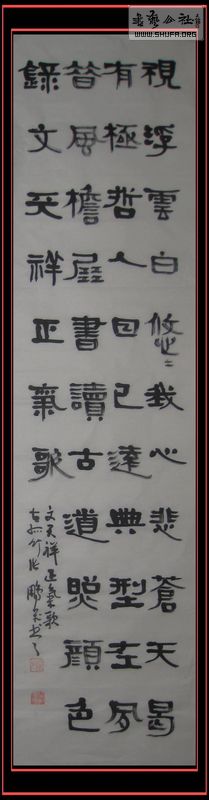 書藝公社
WWW.SHUFA.ORG
視浮雲白悠〻我心悲蒼天曷
有極哲人日已遠典型在夙
昔風檐展書讀古道照顏色
錄文天祥正氣歌
文天祥正氣歌